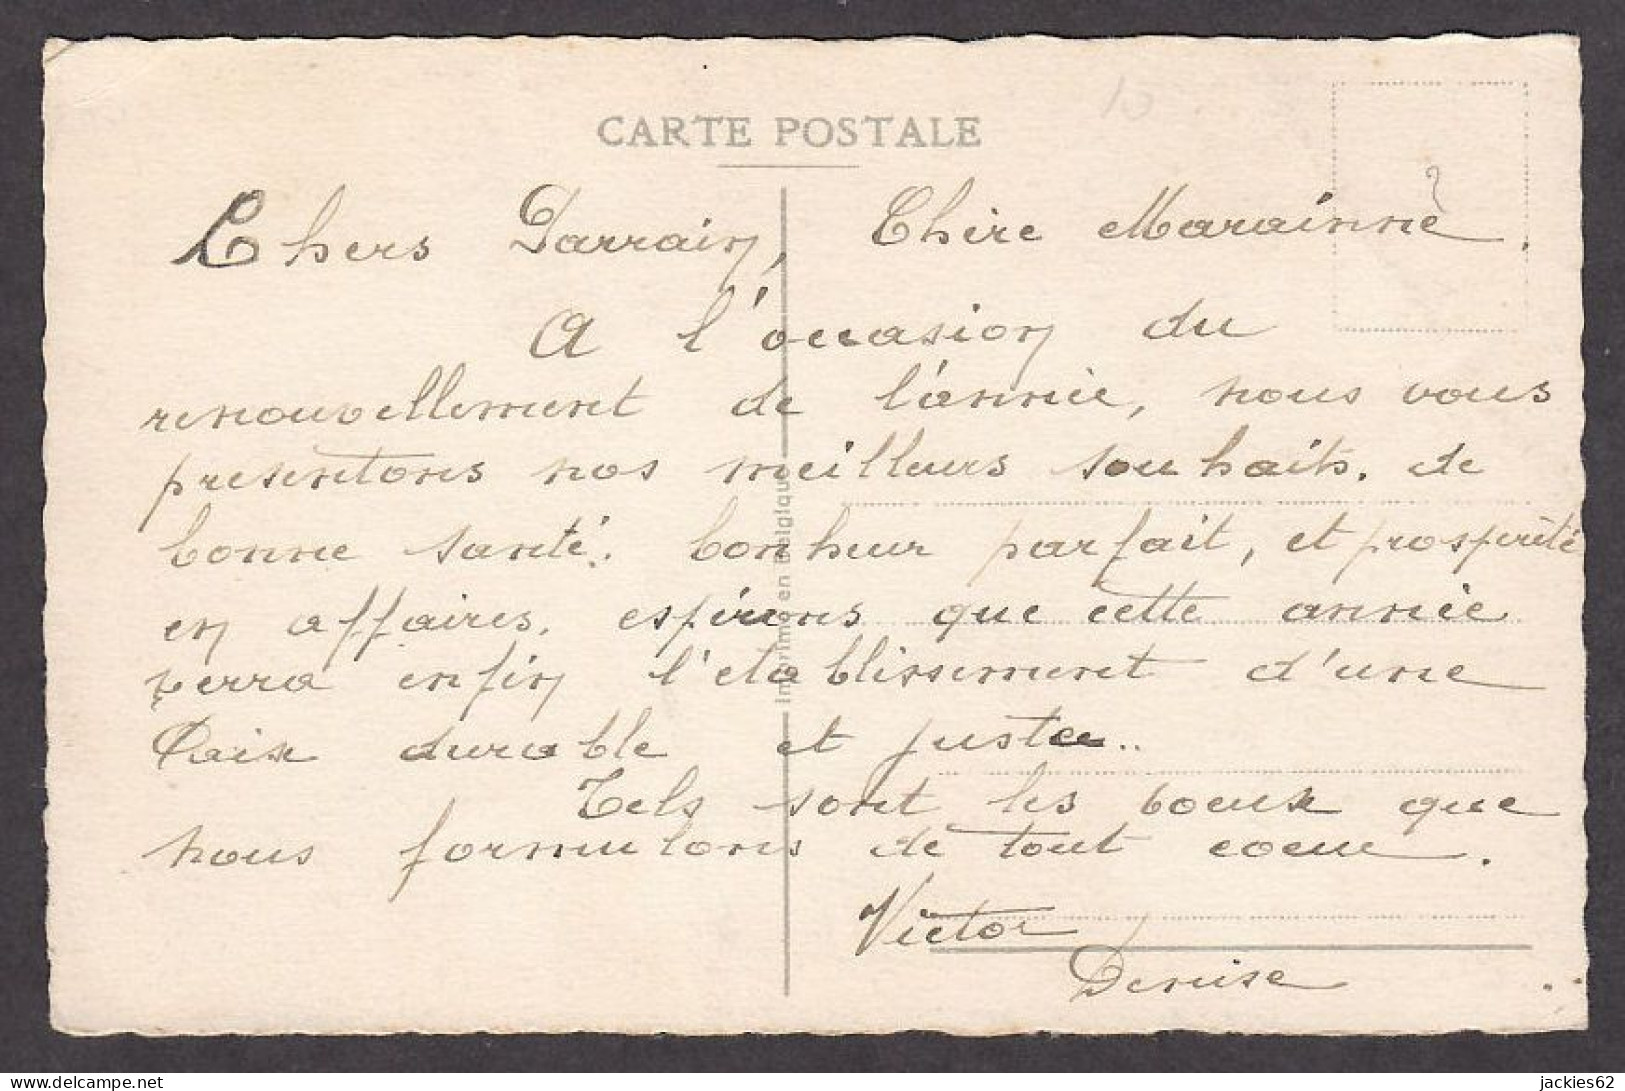 10
CARTE POSTALE
Chers Parrain, Chère Marainne.
A l'occasion du
renouvellement de l'année, nous vous
presentons nos meilleurs souhaits. de
bonne santé. bonheur parfait, et prospérité
en affaires. espérons que cette année
verra enfin l'etablissement d'une
Paix durable et juste..
Tels sont les voeux que
nous formulons de tout coeur.
Victor
Denise
Imprimé en Belgique
delcampe.net
jackies62